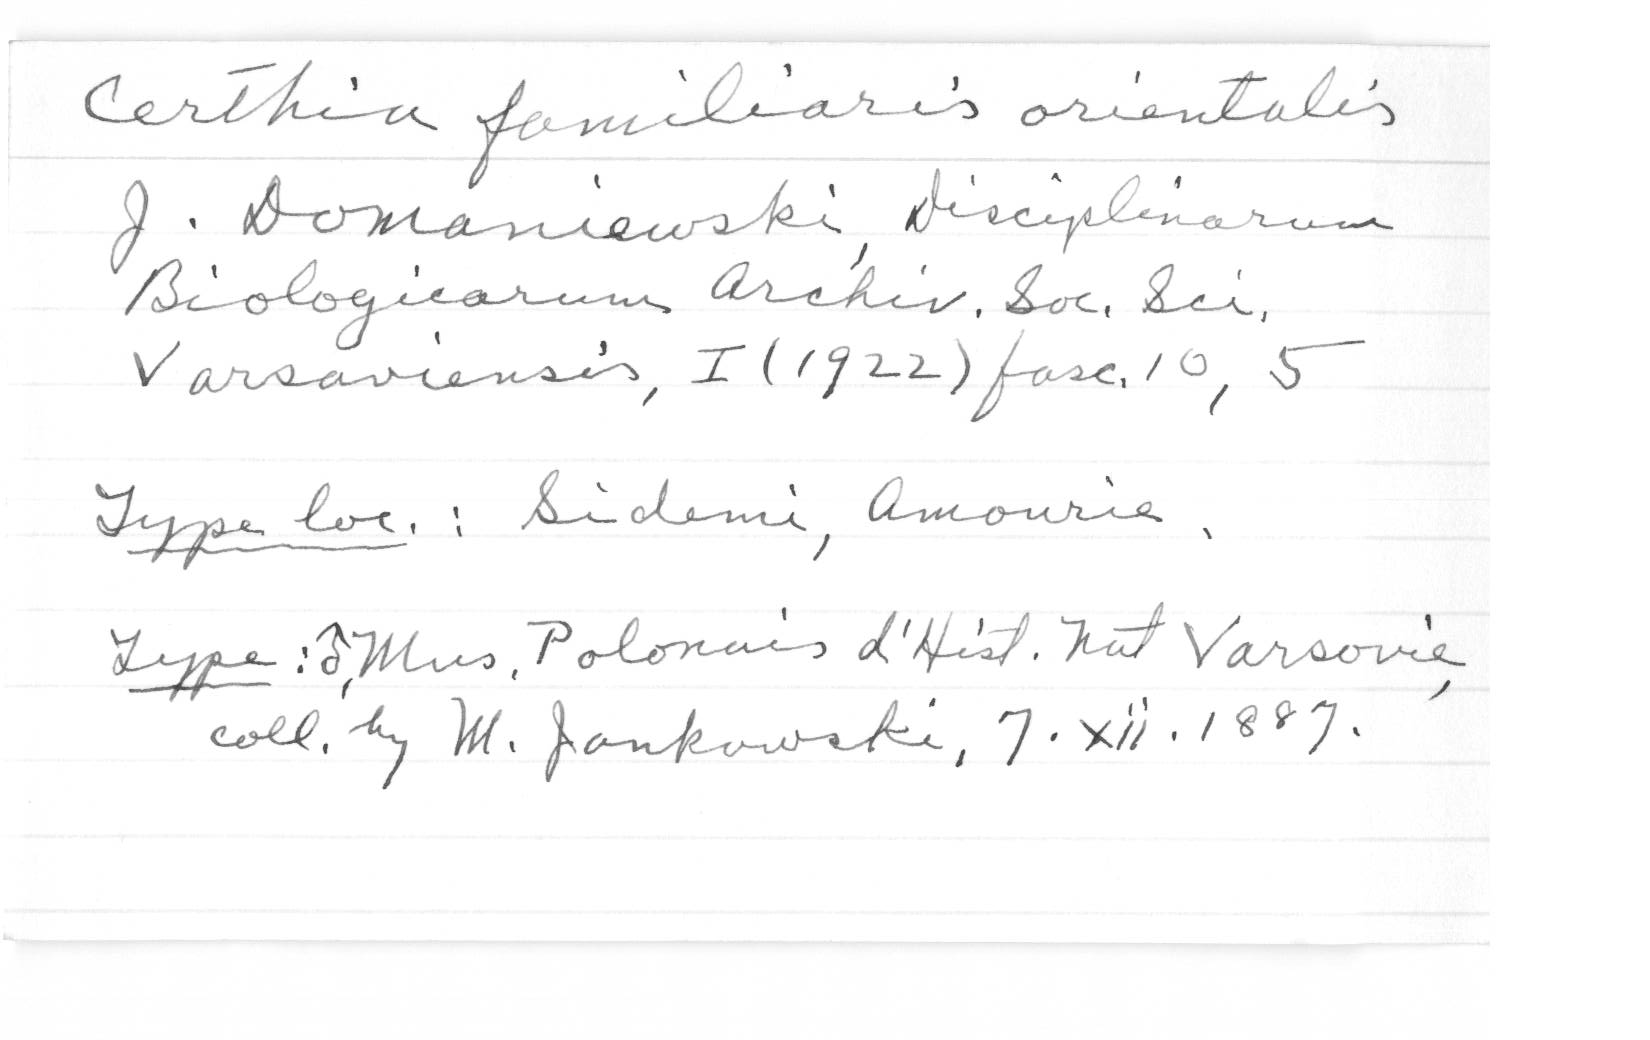 Certhia familiaris orientalis
J. Domaniewski, Disciplinarum
Biologicarum Archiv. Soc. Sci.
Varsaviensis, I (1922) fasc. 10, 5
Type loc. : Sidemi, Amourie.
Type : ♂, Mus. Polonais d'Hist. Nat Varsovie,
coll. by M. Jankowski, 7. xii. 1887.